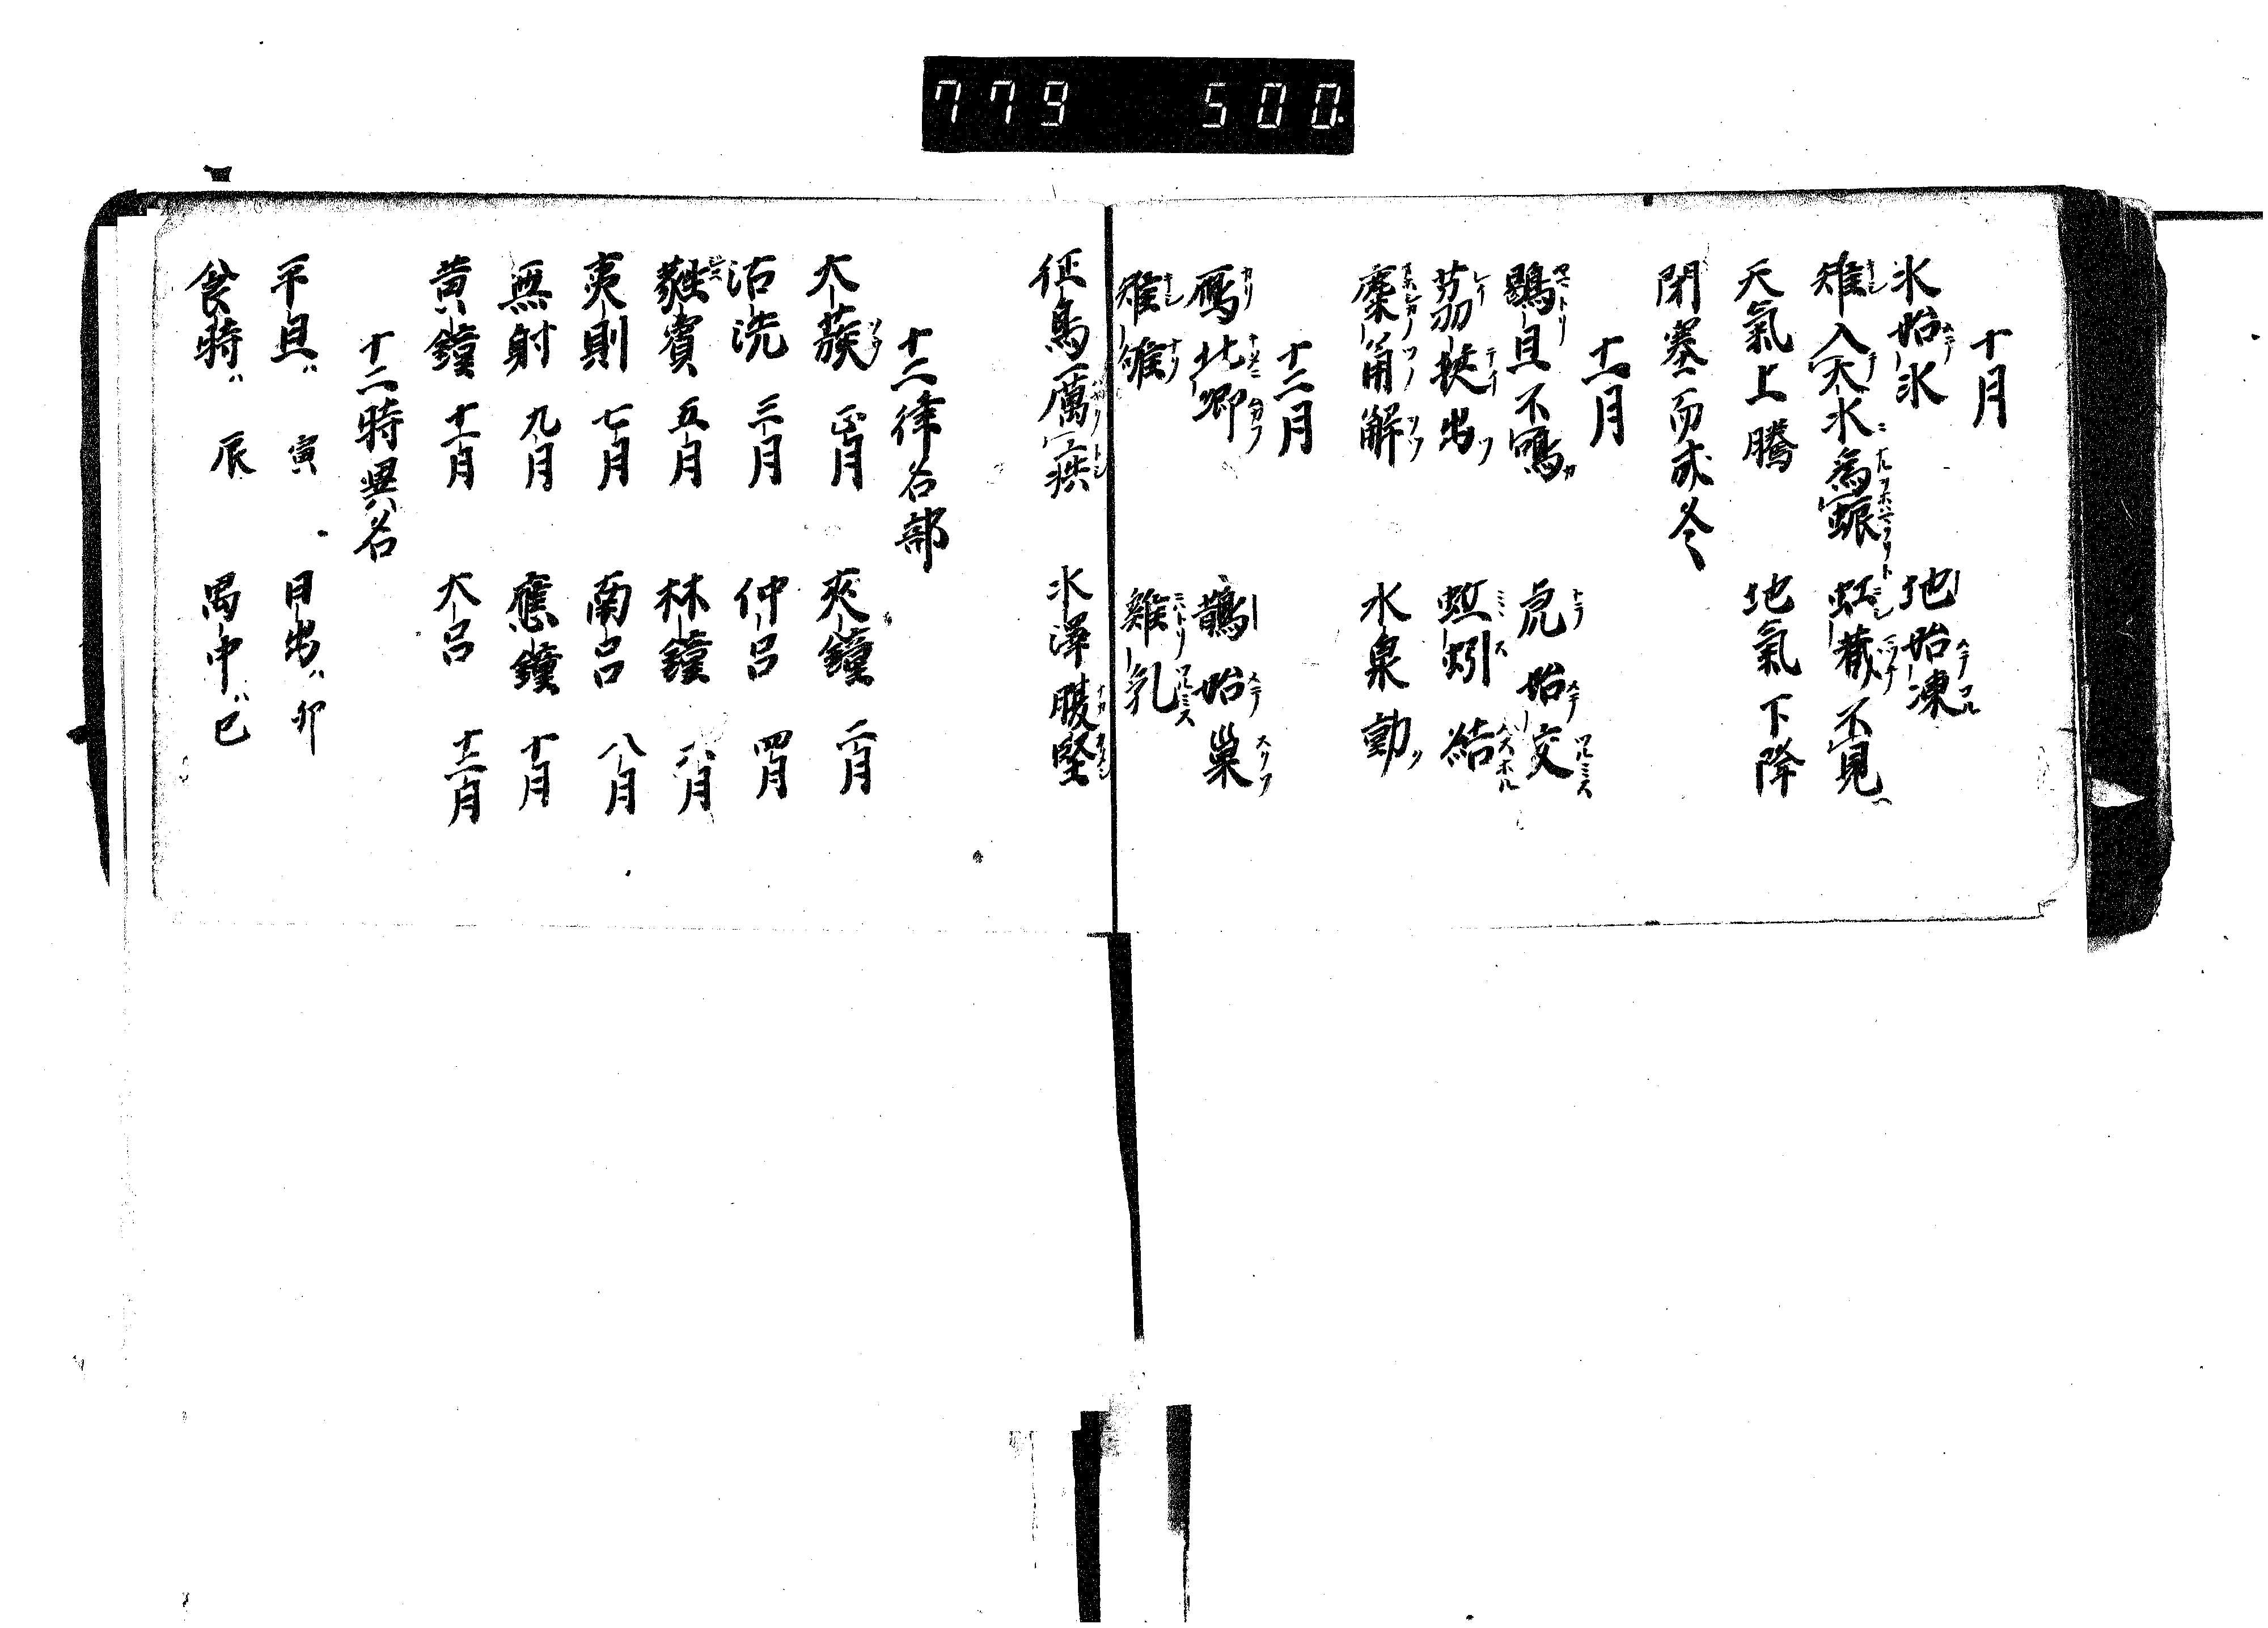 779 500.
十月
水始氷 地始凍
雉入大水為蜃 虹蔵不見
天氣上騰 地氣下降
閉塞而成冬
十一月
鶡旦不鳴 虎始交
茘挟出 蚯蚓結
麋角解 水泉動
十二月
鴈北郷 鵲始巣
雉雊 雞乳
征鳥厲疾 水澤腹堅
十二律名部
大蔟 正月 夾鐘 二月
沽洗 三月 仲呂 四月
蕤賓 五月 林鐘 六月
夷則 七月 南呂 八月
無射 九月 應鐘 十月
黄鐘 十一月 大呂 十二月
十二時異名
平旦ハ 寅 日出ハ 卯
食時ハ 辰 禺中ハ 巳